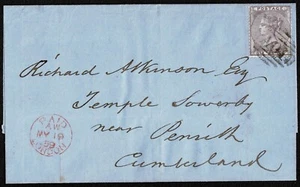 POSTAGE
Richard Atkinson Esq
Temple Sowerby
near Penrith
Cumberland
PAID
MY 18
LONDON